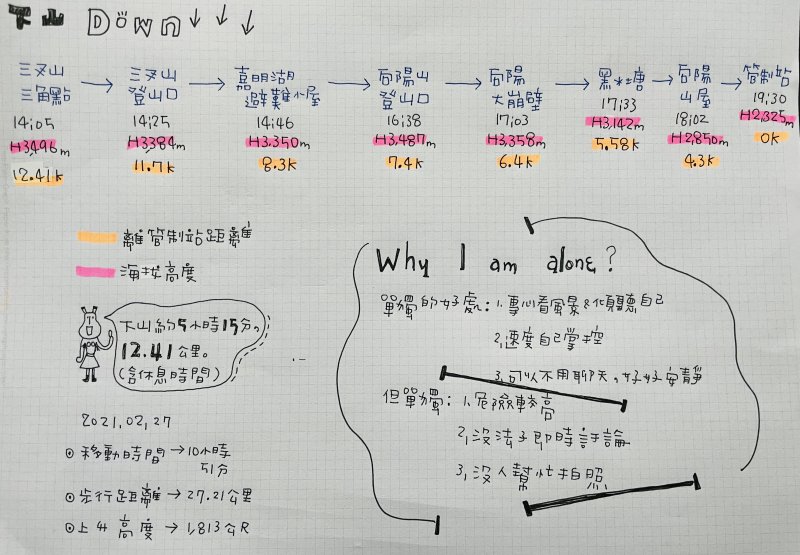 下山 Down ↓ ↓ ↓
三叉山 三角點 → 三叉山 登山口 → 嘉明湖 避難小屋 → 向陽山 登山口 → 向陽 大崩壁 → 黑水塘 → 向陽 山屋 → 管制站
14:05 14:25 14:46 16:38 17:03 17:33 18:02 19:30
H3,496m H3,384m H3,350m H3,487m H3,358m H3,142m H2,850m H2,325m
12.41k 11.7k 8.3k 7.4k 6.4k 5.58k 4.3k 0k
離管制站距離
海拔高度
下山約5小時15分。
12.41公里。
(含休息時間)
2021.02.27
⊙移動時間→10小時
51分
⊙步行距離→27.21公里
⊙上升高度→1,813公尺
Why I am alone?
單獨的好處:1.專心看風景&傾聽自己
2.速度自己掌控
3.可以不用聊天。好好安靜
但單獨:1.危險較高
2.沒法子即時討論
3.沒人幫忙拍照